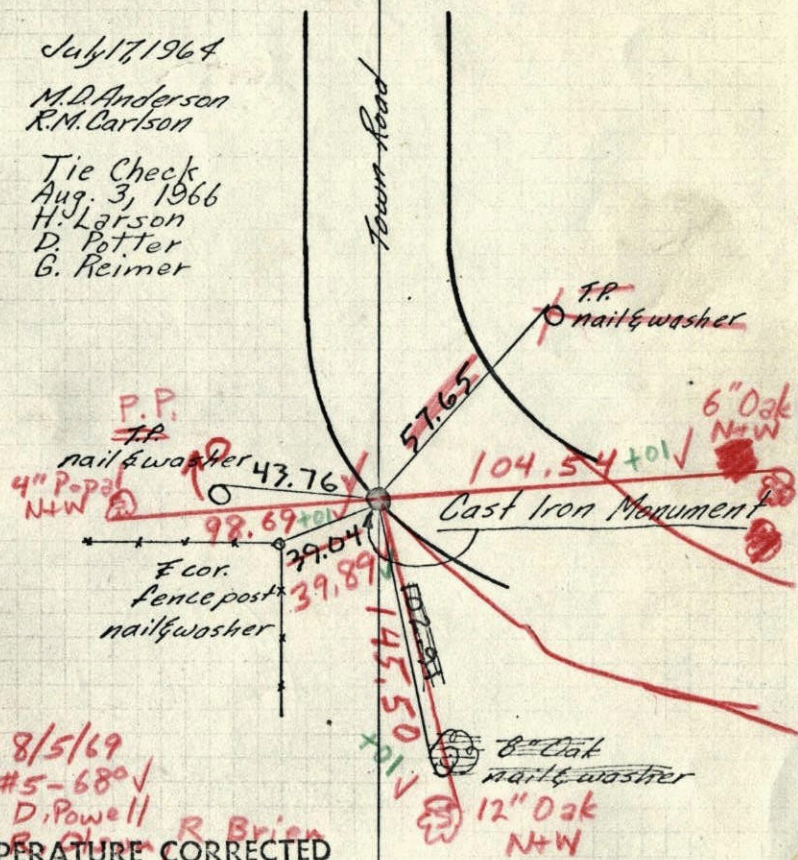 July 17, 1964
M.D. Anderson
R.M. Carlson
Tie Check
Aug. 3, 1966
H. Larson
D. Potter
G. Reimer
Town Road
T.P.
nail & washer
57.65
6" Oak
N+W
104.54 +01 ✓
P.P.
T.P.
nail & washer
43.76 ✓
4" Popal
N+W
98.69 +01 ✓
Cast Iron Monument
39.04
39.89 ✓
cor.
fence post
nail & washer
145.50
+01 ✓
8" Oak
nail & washer
12" Oak
N+W
8/5/69
#5-68° ✓
D. Powell
R. Brien
PERATURE CORRECTED